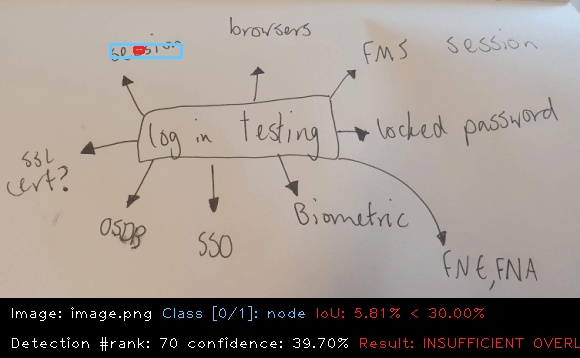 session
browsers
FMS session
log in testing
locked password
SSL
cert?
OSDB
SSO
Biometric
FNE, FNA
Image: image.png Class [0/1]: node IoU: 5.81% < 30.00%
Detection #rank: 70 confidence: 39.70% Result: INSUFFICIENT OVERL